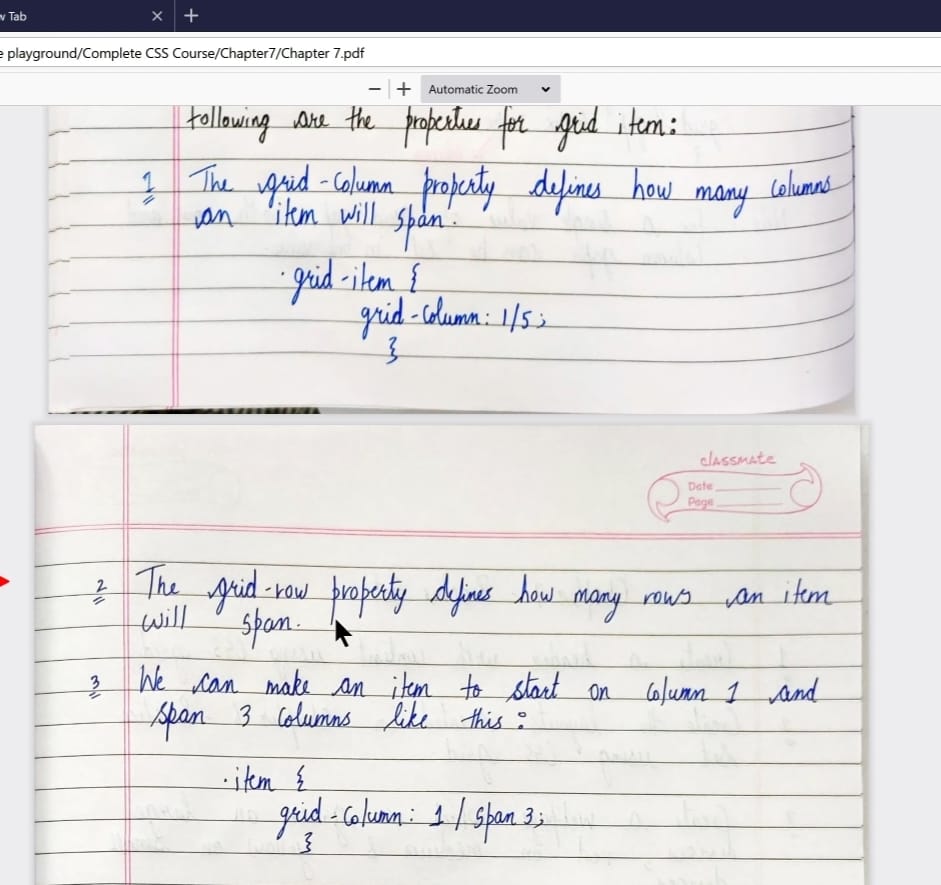 w Tab
e playground/Complete CSS Course/Chapter7/Chapter 7.pdf
Automatic Zoom
following are the properties for grid item:
1 The grid-column property defines how many columns
an item will span.
.grid-item {
grid-column: 1/5;
}
classmate
Date
Page
2 The grid-row property defines how many rows an item
will span.
3 We can make an item to start on column 1 and
span 3 columns like this:
.item {
grid-column: 1 / span 3;
}